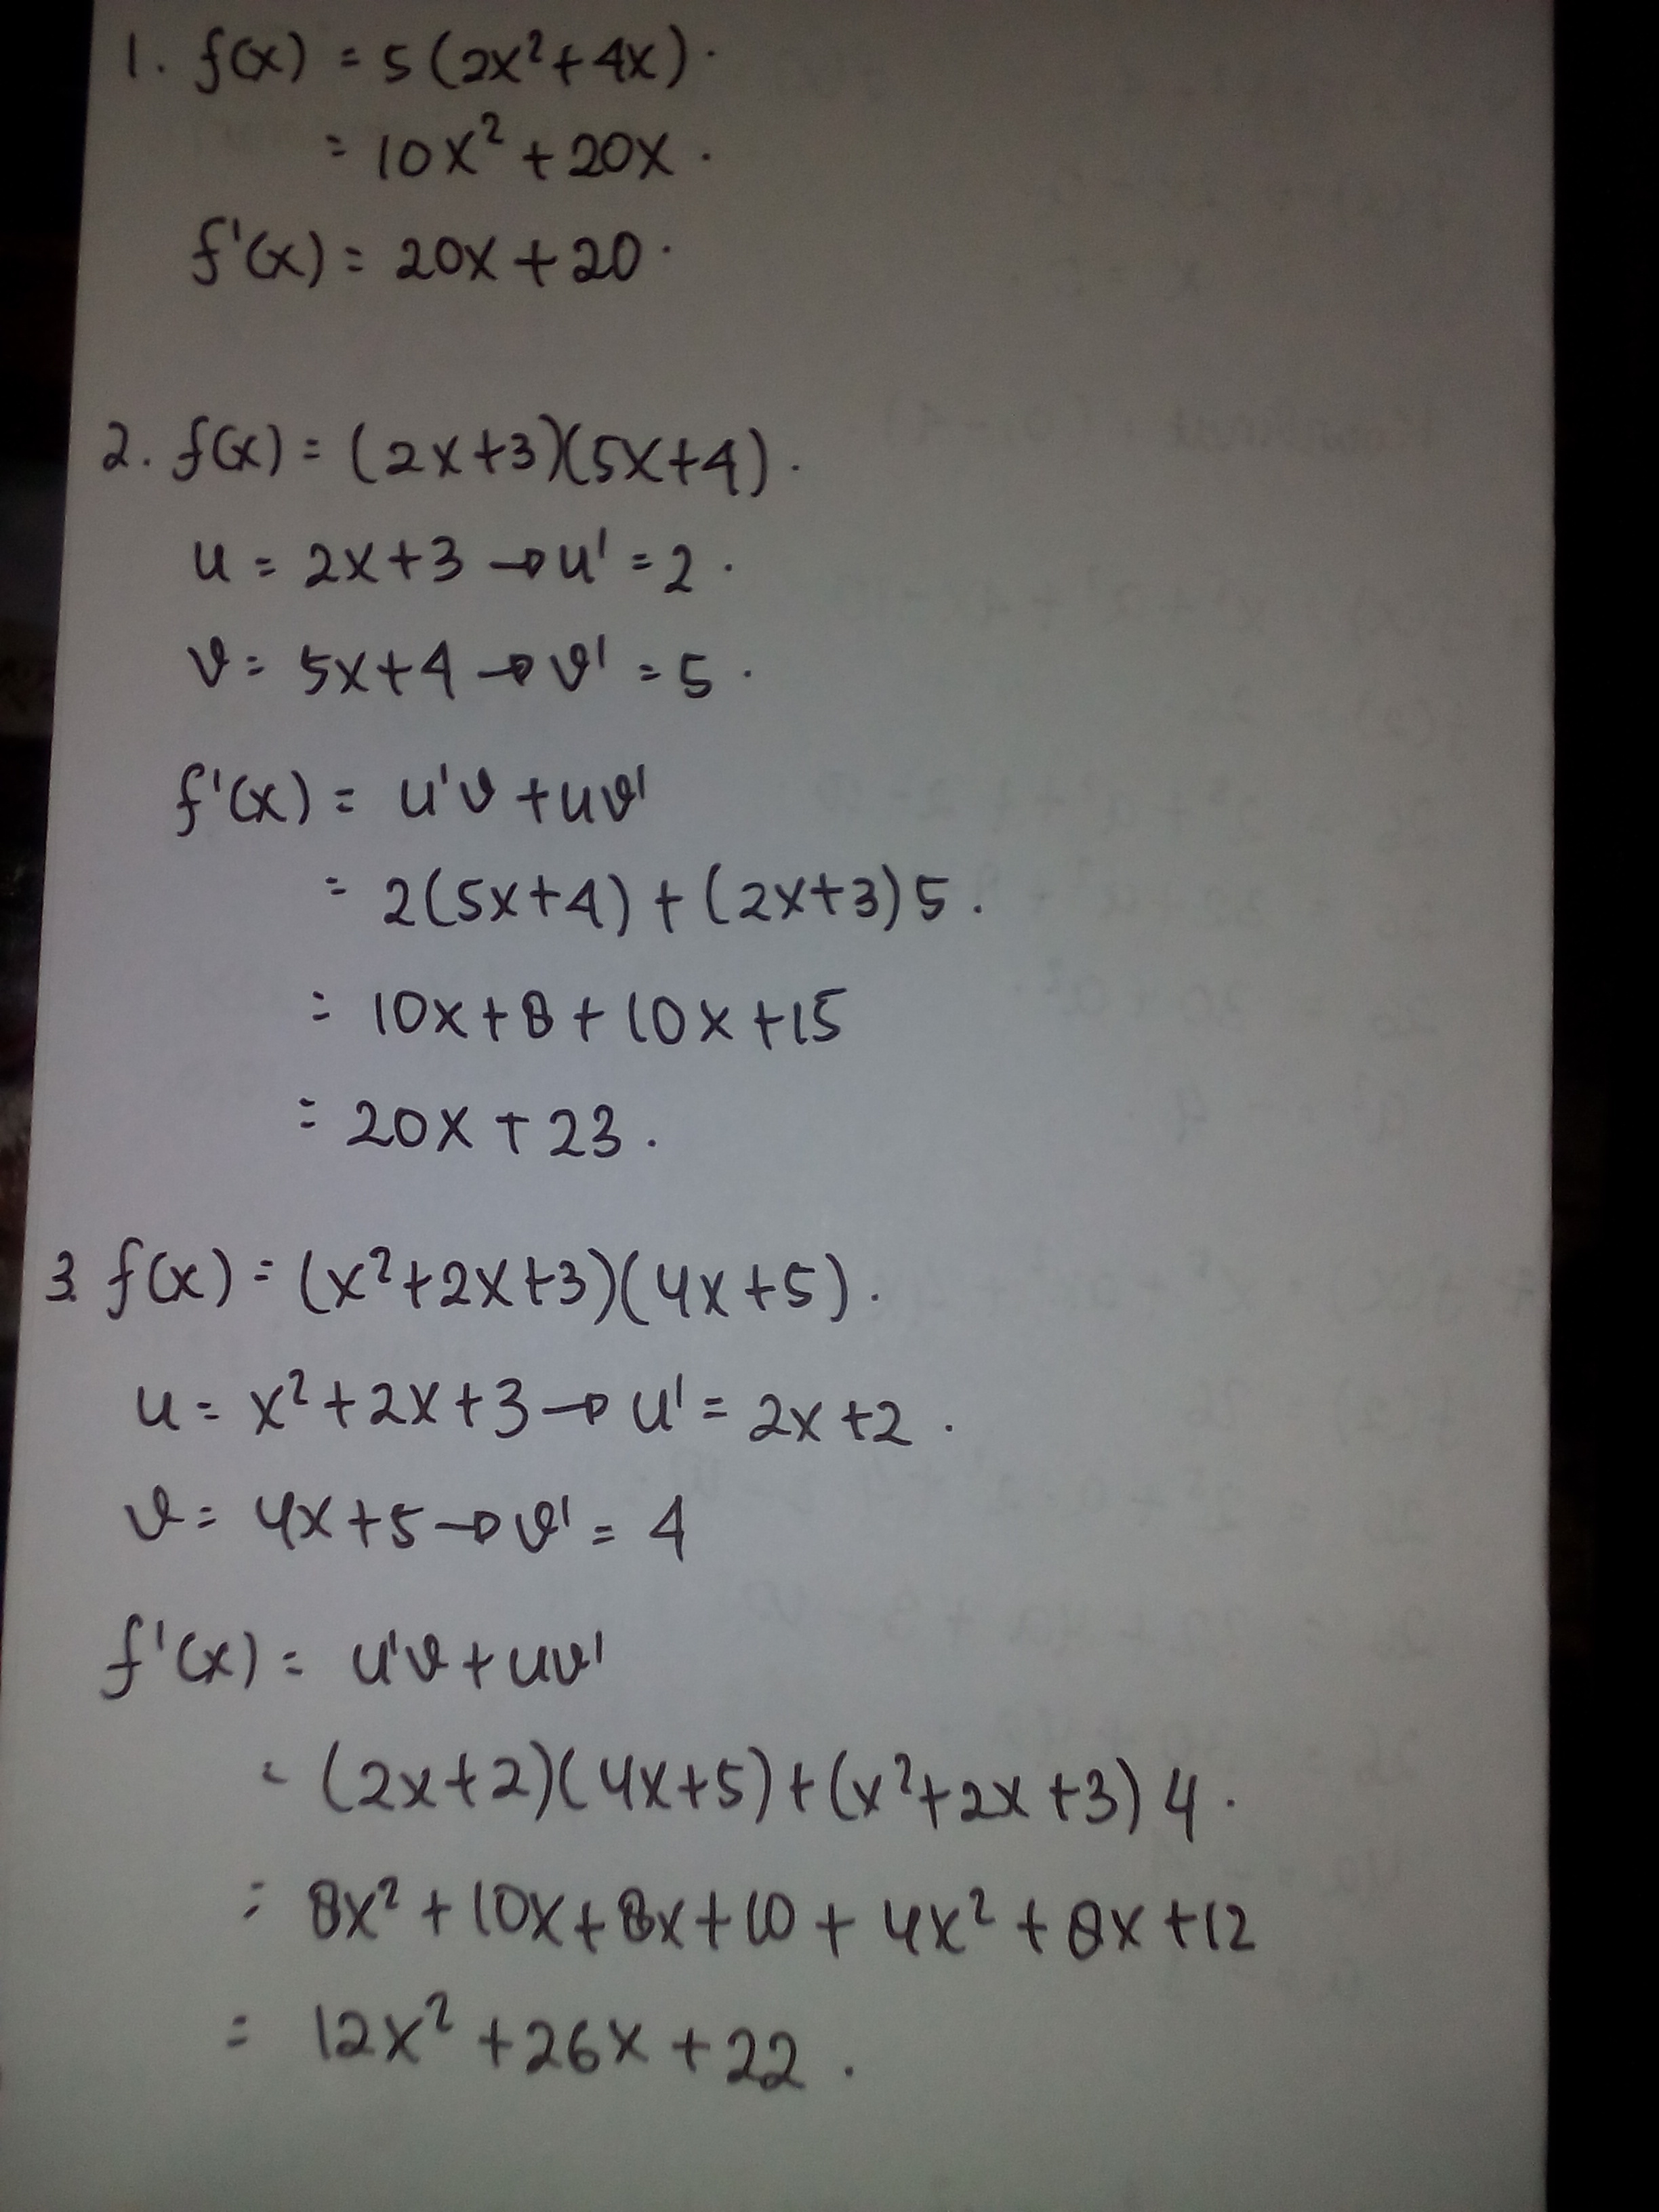 1. f(x) = 5(2x²+4x).
= 10x² + 20x.
f'(x) = 20x + 20.
2. f(x) = (2x+3)(5x+4).
u = 2x+3 → u' = 2.
v = 5x+4 → v' = 5.
f'(x) = u'v + uv'
= 2(5x+4) + (2x+3)5.
= 10x+8+10x+15
= 20x + 23.
3. f(x) = (x²+2x+3)(4x+5).
u = x²+2x+3 → u' = 2x+2.
v = 4x+5 → v' = 4
f'(x) = u'v + uv'
= (2x+2)(4x+5)+(x²+2x+3)4.
= 8x² + 10x + 8x + 10 + 4x² + 8x + 12
= 12x² + 26x + 22.